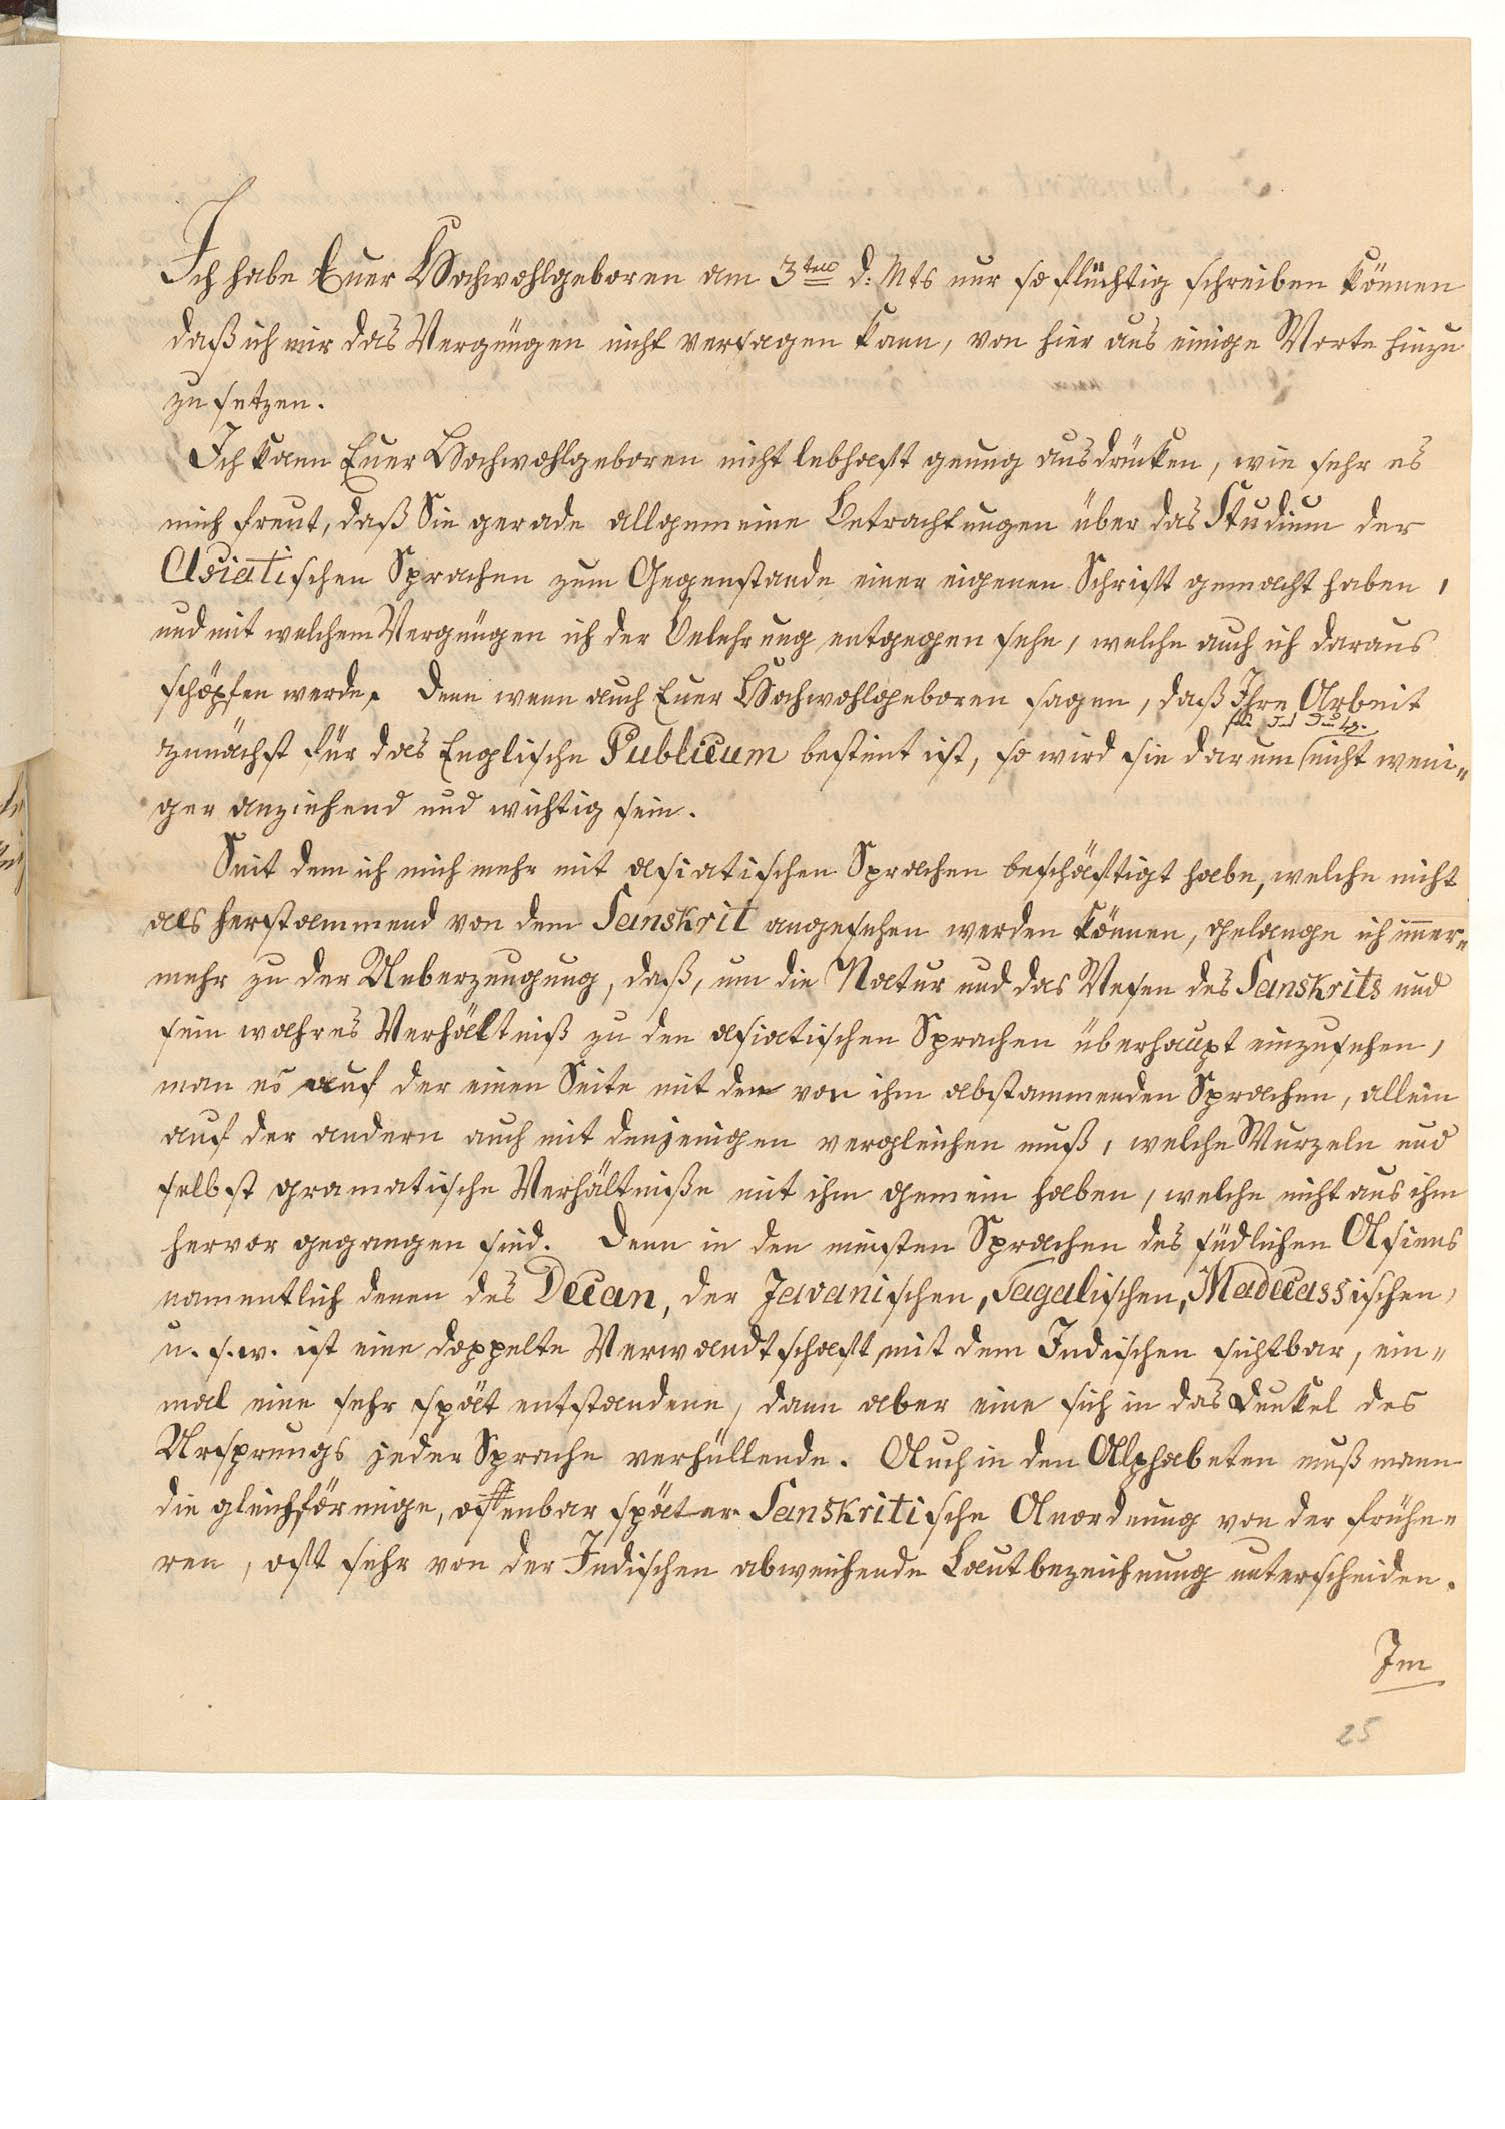 Ich habe Euer Hochwohlgeboren am 3ten d. Mts nur so flüchtig schreiben können
daß ich mir das Vergnügen nicht versagen kann, von hier aus einige Worte hinzu
zu setzen.
Ich kann Euer Hochwohlgeboren nicht lebhaft genug ausdrücken, wie sehr es
mich freut, daß Sie gerade allgemeine Betrachtungen über das Studium der
Asiatischen Sprachen zum Gegenstande einer eigenen Schrift gemacht haben,
und mit welchem Vergnügen ich der Belehrung entgegen sehe, welche auch ich daraus
schöpfen werde. Denn wenn auch Euer Hochwohlgeboren sagen, daß Ihre Arbeit
zunächst für das Englische Publicum bestimt ist, so wird sie darum nicht weni-
ger anziehend und wichtig sein.
Seit dem ich mich mehr mit asiatischen Sprachen beschäftigt habe, welche nicht
als herstammend von dem Sanskrit angesehen werden können, gelange ich im̄er-
mehr zu der Ueberzeugung, daß, um die Natur und das Wesen des Sanskrits und
sein wahres Verhältniß zu den asiatischen Sprachen überhaupt einzusehen,
man es auf der einen Seite mit den von ihm abstammenden Sprachen, allein
auf der andern auch mit denjenigen vergleichen muß, welche Wurzeln und
selbst gramatische Verhältniße mit ihm gemein haben, welche nicht aus ihm
hervor gegangen sind. Denn in den meisten Sprachen des südlichen Asiens
namentlich denen des Decan, der Javanischen, Tagalischen, Madecassischen,
u. s. w. ist eine doppelte Verwandtschaft mit dem Indischen sichtbar, ein-
mal eine sehr spät entstandene, dann aber eine sich in das Dunkel des
Ursprungs jeder Sprache verhüllende. Auch in den Alphabeten muß mann
die gleichförmige, offenbar später Sanskritische Anordnung von der frühe-
ren, oft sehr von der Indischen abweichende Lautbezeichnung unterscheiden.
Im
25